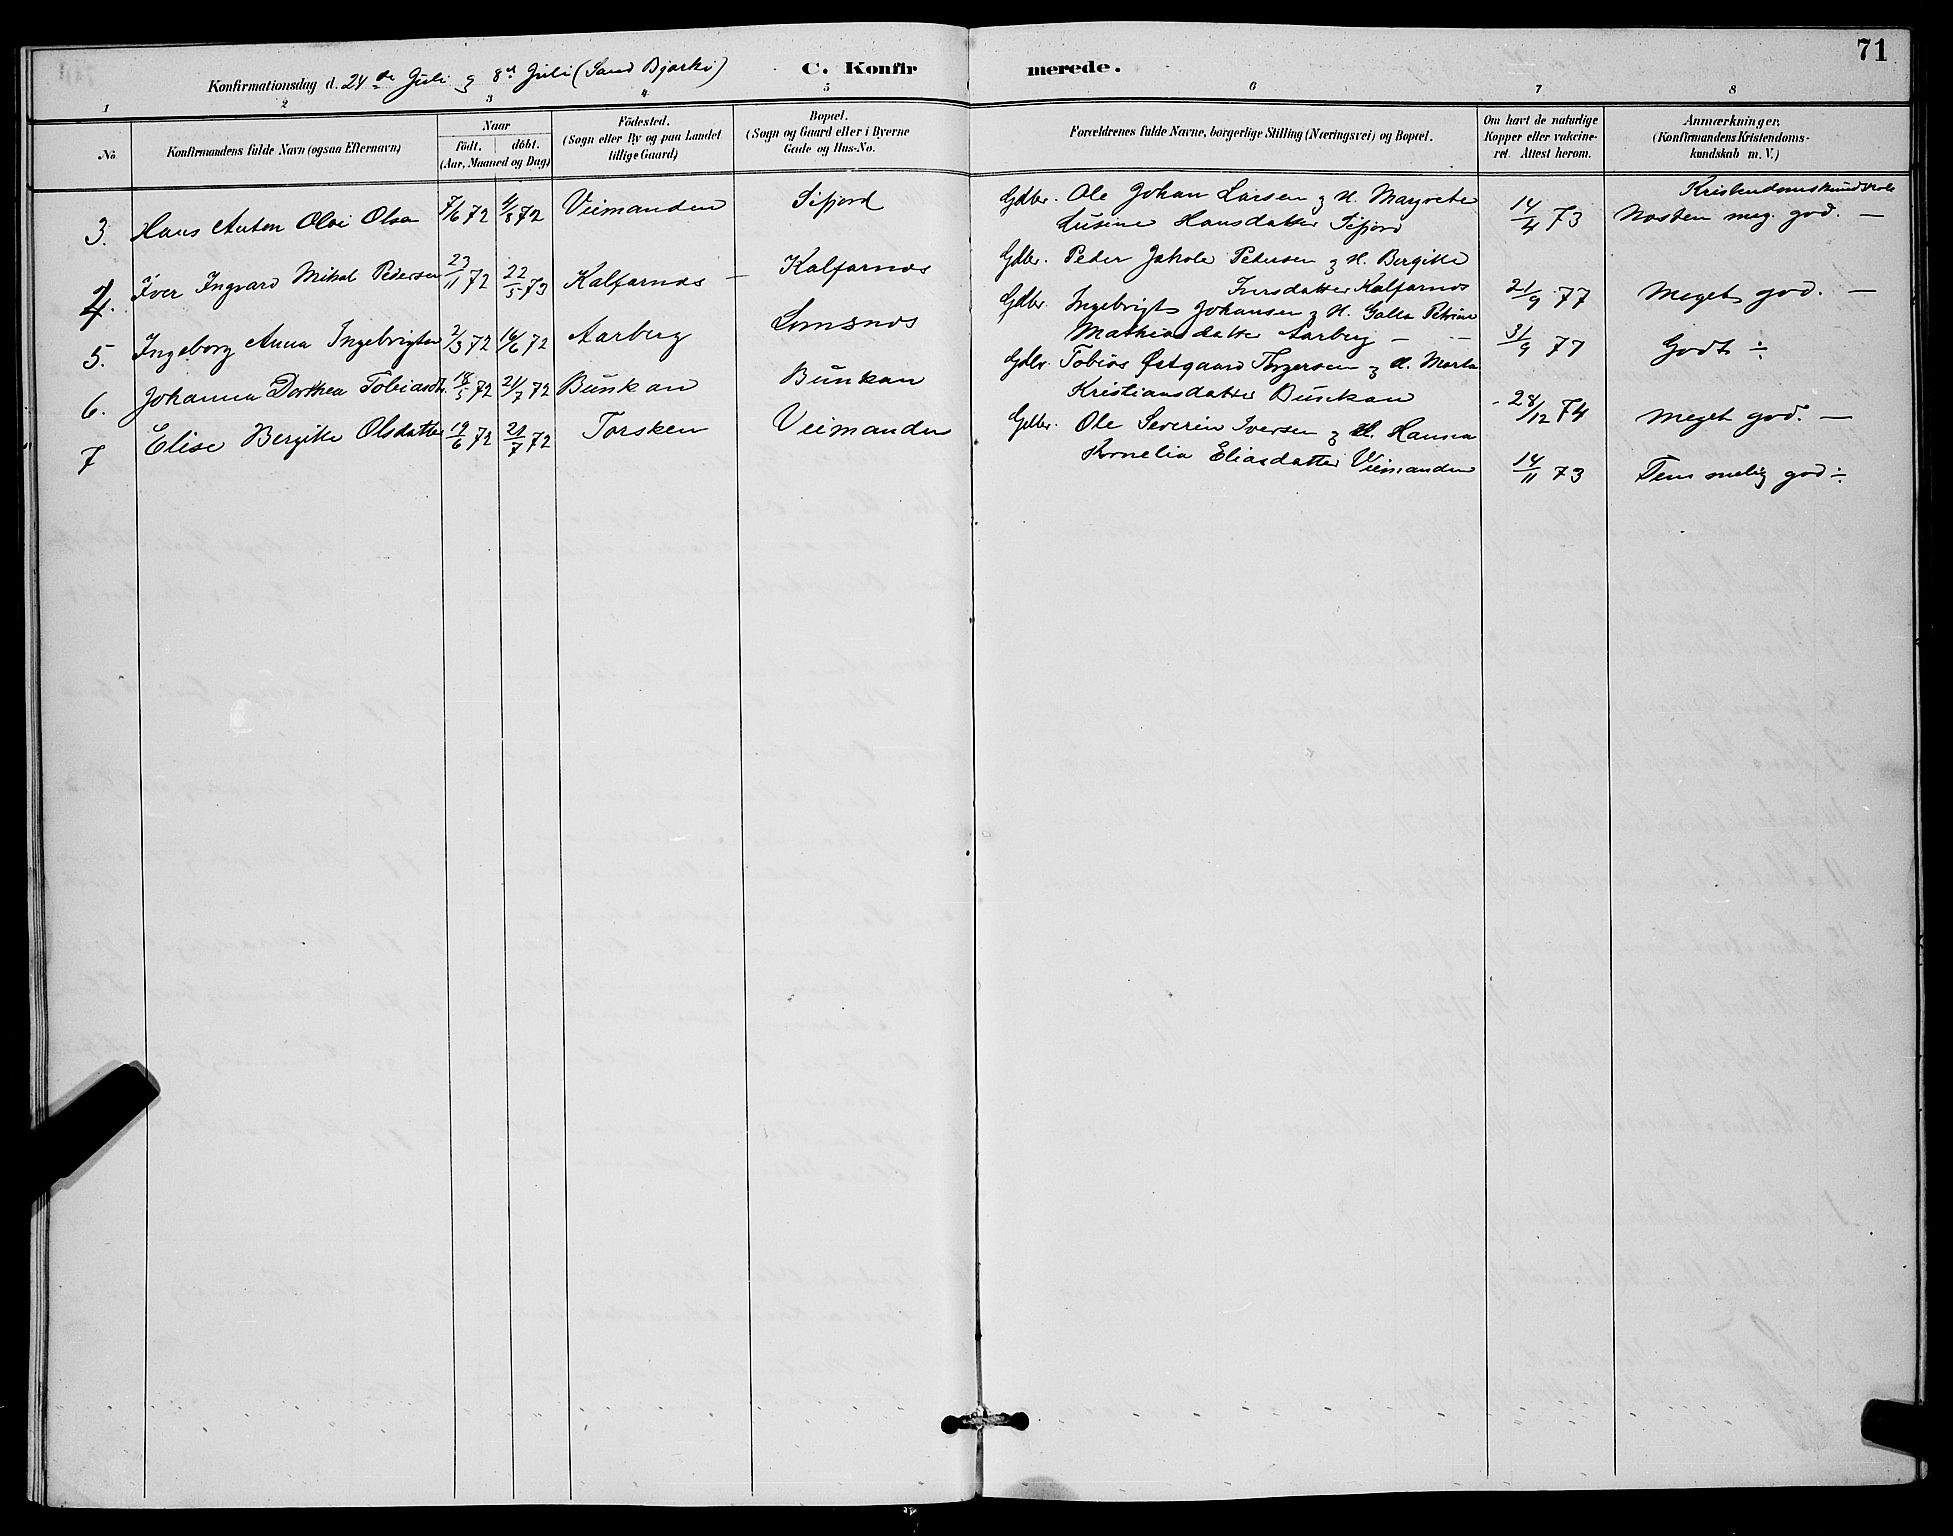 71
Konfirmationsdag d. 24de Juli & 8de Juli (Sand Bjarkö) C. Konfirmerede.
1 2 3 4 5 6 7 8
No
Konfirmandens fulde Navn (ogsaa Efternavn)
Naar
födt. döbt.
(Aar, Maaned og Dag)
Födested.
(Sogn eller By og paa Landet
tillige Gaard)
Bopæl.
(Sogn og Gaard eller i Byerne
Gade og Hus-No.
Forældrenes fulde Navne, borgerlige Stilling (Næringsvei) og Bopæl.
Om havt de naturlige
Kopper eller vakcine-
ret. Attest herom.
Anmærkninger.
(Konfirmandens Kristendoms-
kundskab m. V.)
3. Hans Anton Olai Olsen 7/6 72 4/8 72 Veimanden Sifjord Gdbr. Ole Johan Larsen & H. Margrete
Lusine Hansdatter Sifjord 14/4 73 Kristendomskundskab
Næsten meg. god. —
4. Iver Ingvard Mikal Pedersen 23/11 72 22/5 73 Kalfarnes — Kalfarnes Gdbr. Peder Jakob Petersen & H. Bergitte
Iversdatter Kalfarnes 21/9 77 Meget god. —
5. Ingeborg Anna Ingebrigtsen 2/3 72 16/6 72 Aarberg Lomsnes Gdbr. Ingebrigt Johansen & H. Galla Petrine
Mathiasdatter Aarberg — — 3/9 77 Godt ÷
6. Johanna Dorthea Tobiasdt. 18/5 72 21/7 72 Bunkan Bunkan Gdbr. Tobias Østgaard Torgersen & H. Marta
Kristiansdatter Bunkan 28/12 74 Meget god. —
7 Elise Bergitte Olsdatter 19/6 72 21/7 72 Torsken Veimanden Gdbr. Ole Severin Iversen & H. Hanna
Kornelia Eliasdatter Veimanden 14/11 73 Temmelig god ÷